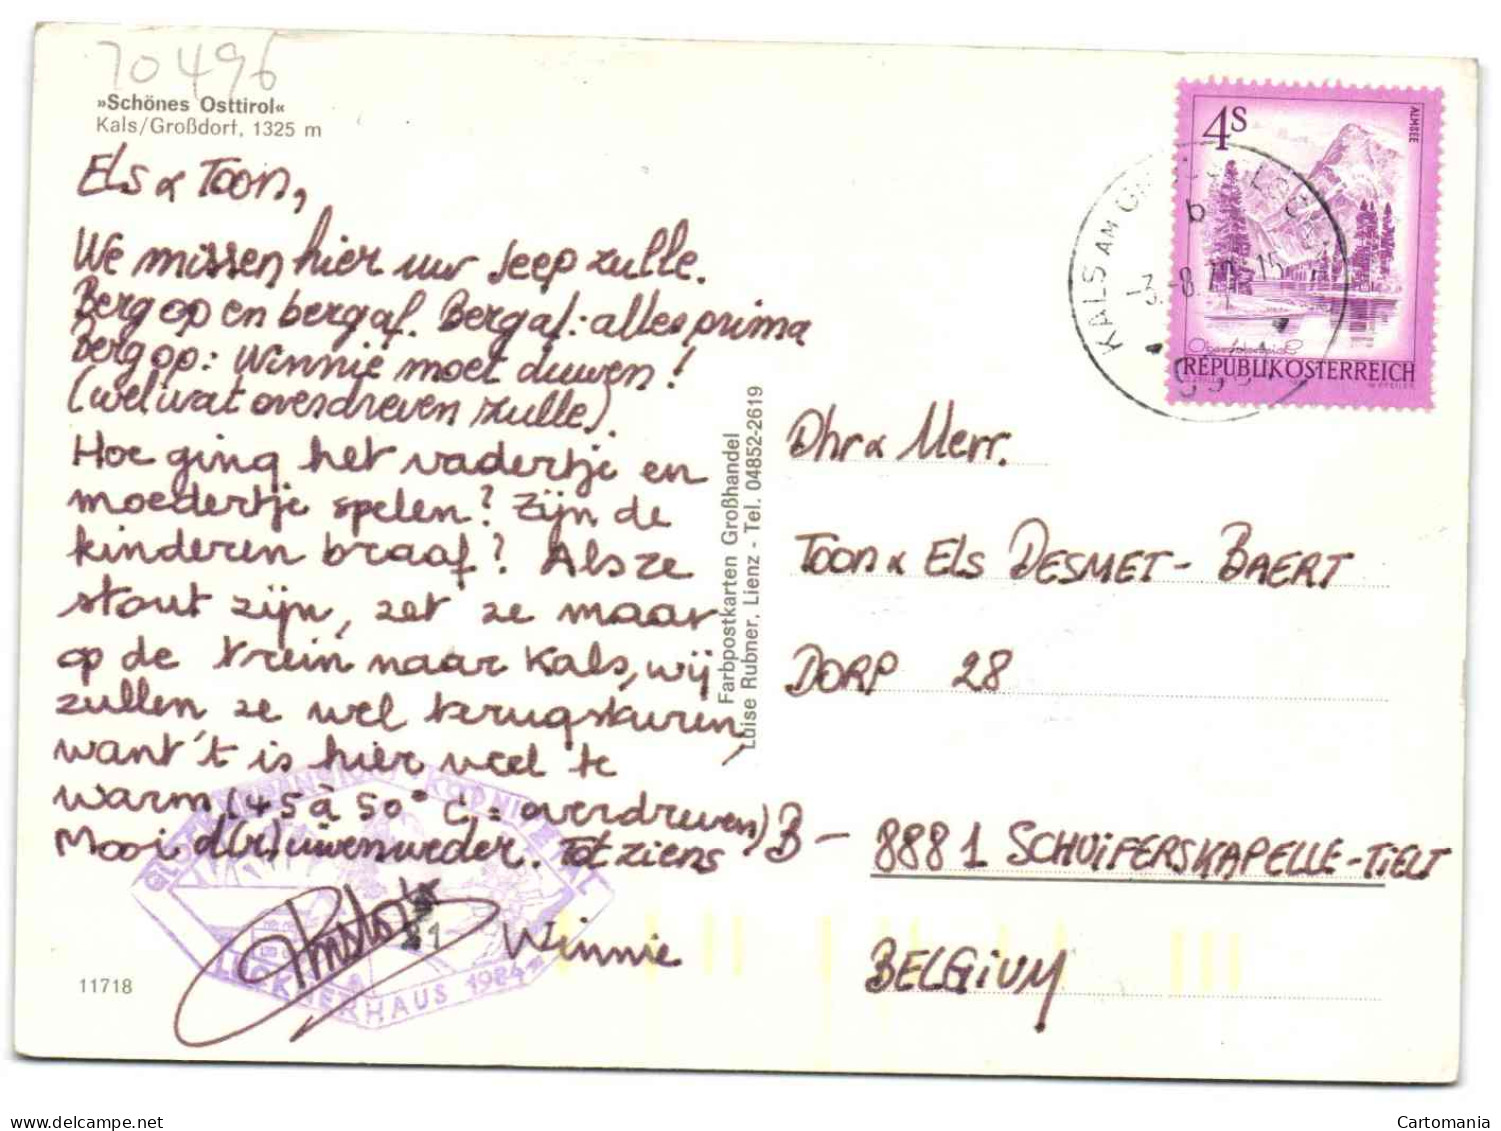 70496
»Schönes Osttirol«
Kals/Großdorf, 1325 m
Els & Toon,
We missen hier uw Jeep zulle.
Berg op en berg af. Berg af: alles prima
Berg op: Winnie moet duwen!
(wel wat overdreven zulle).
Hoe ging het vadertje en
moedertje spelen? Zijn de
kinderen braaf? Als ze
stout zijn, zet ze maar
op de trein naar Kals, wij
zullen ze wel terugsturen,
want 't is hier veel te
warm (45 à 50° C = overdreven)
Mooi d(r)uivenweder. Tot ziens
Winnie
LUCKNERHAUS 1984 m
11718
Farbpostkarten Großhandel
Luise Rubner, Lienz - Tel. 04852-2619
4S
ALMSEE
REPUBLIK ÖSTERREICH
KALS AM
b
-3.-8. 15
Dhr & Mevr.
Toon & Els DESMET - BAERT
DORP 28
B - 8881 SCHUIFERSKAPELLE-TIELT
BELGIUM
Cartomania
delcampe.net